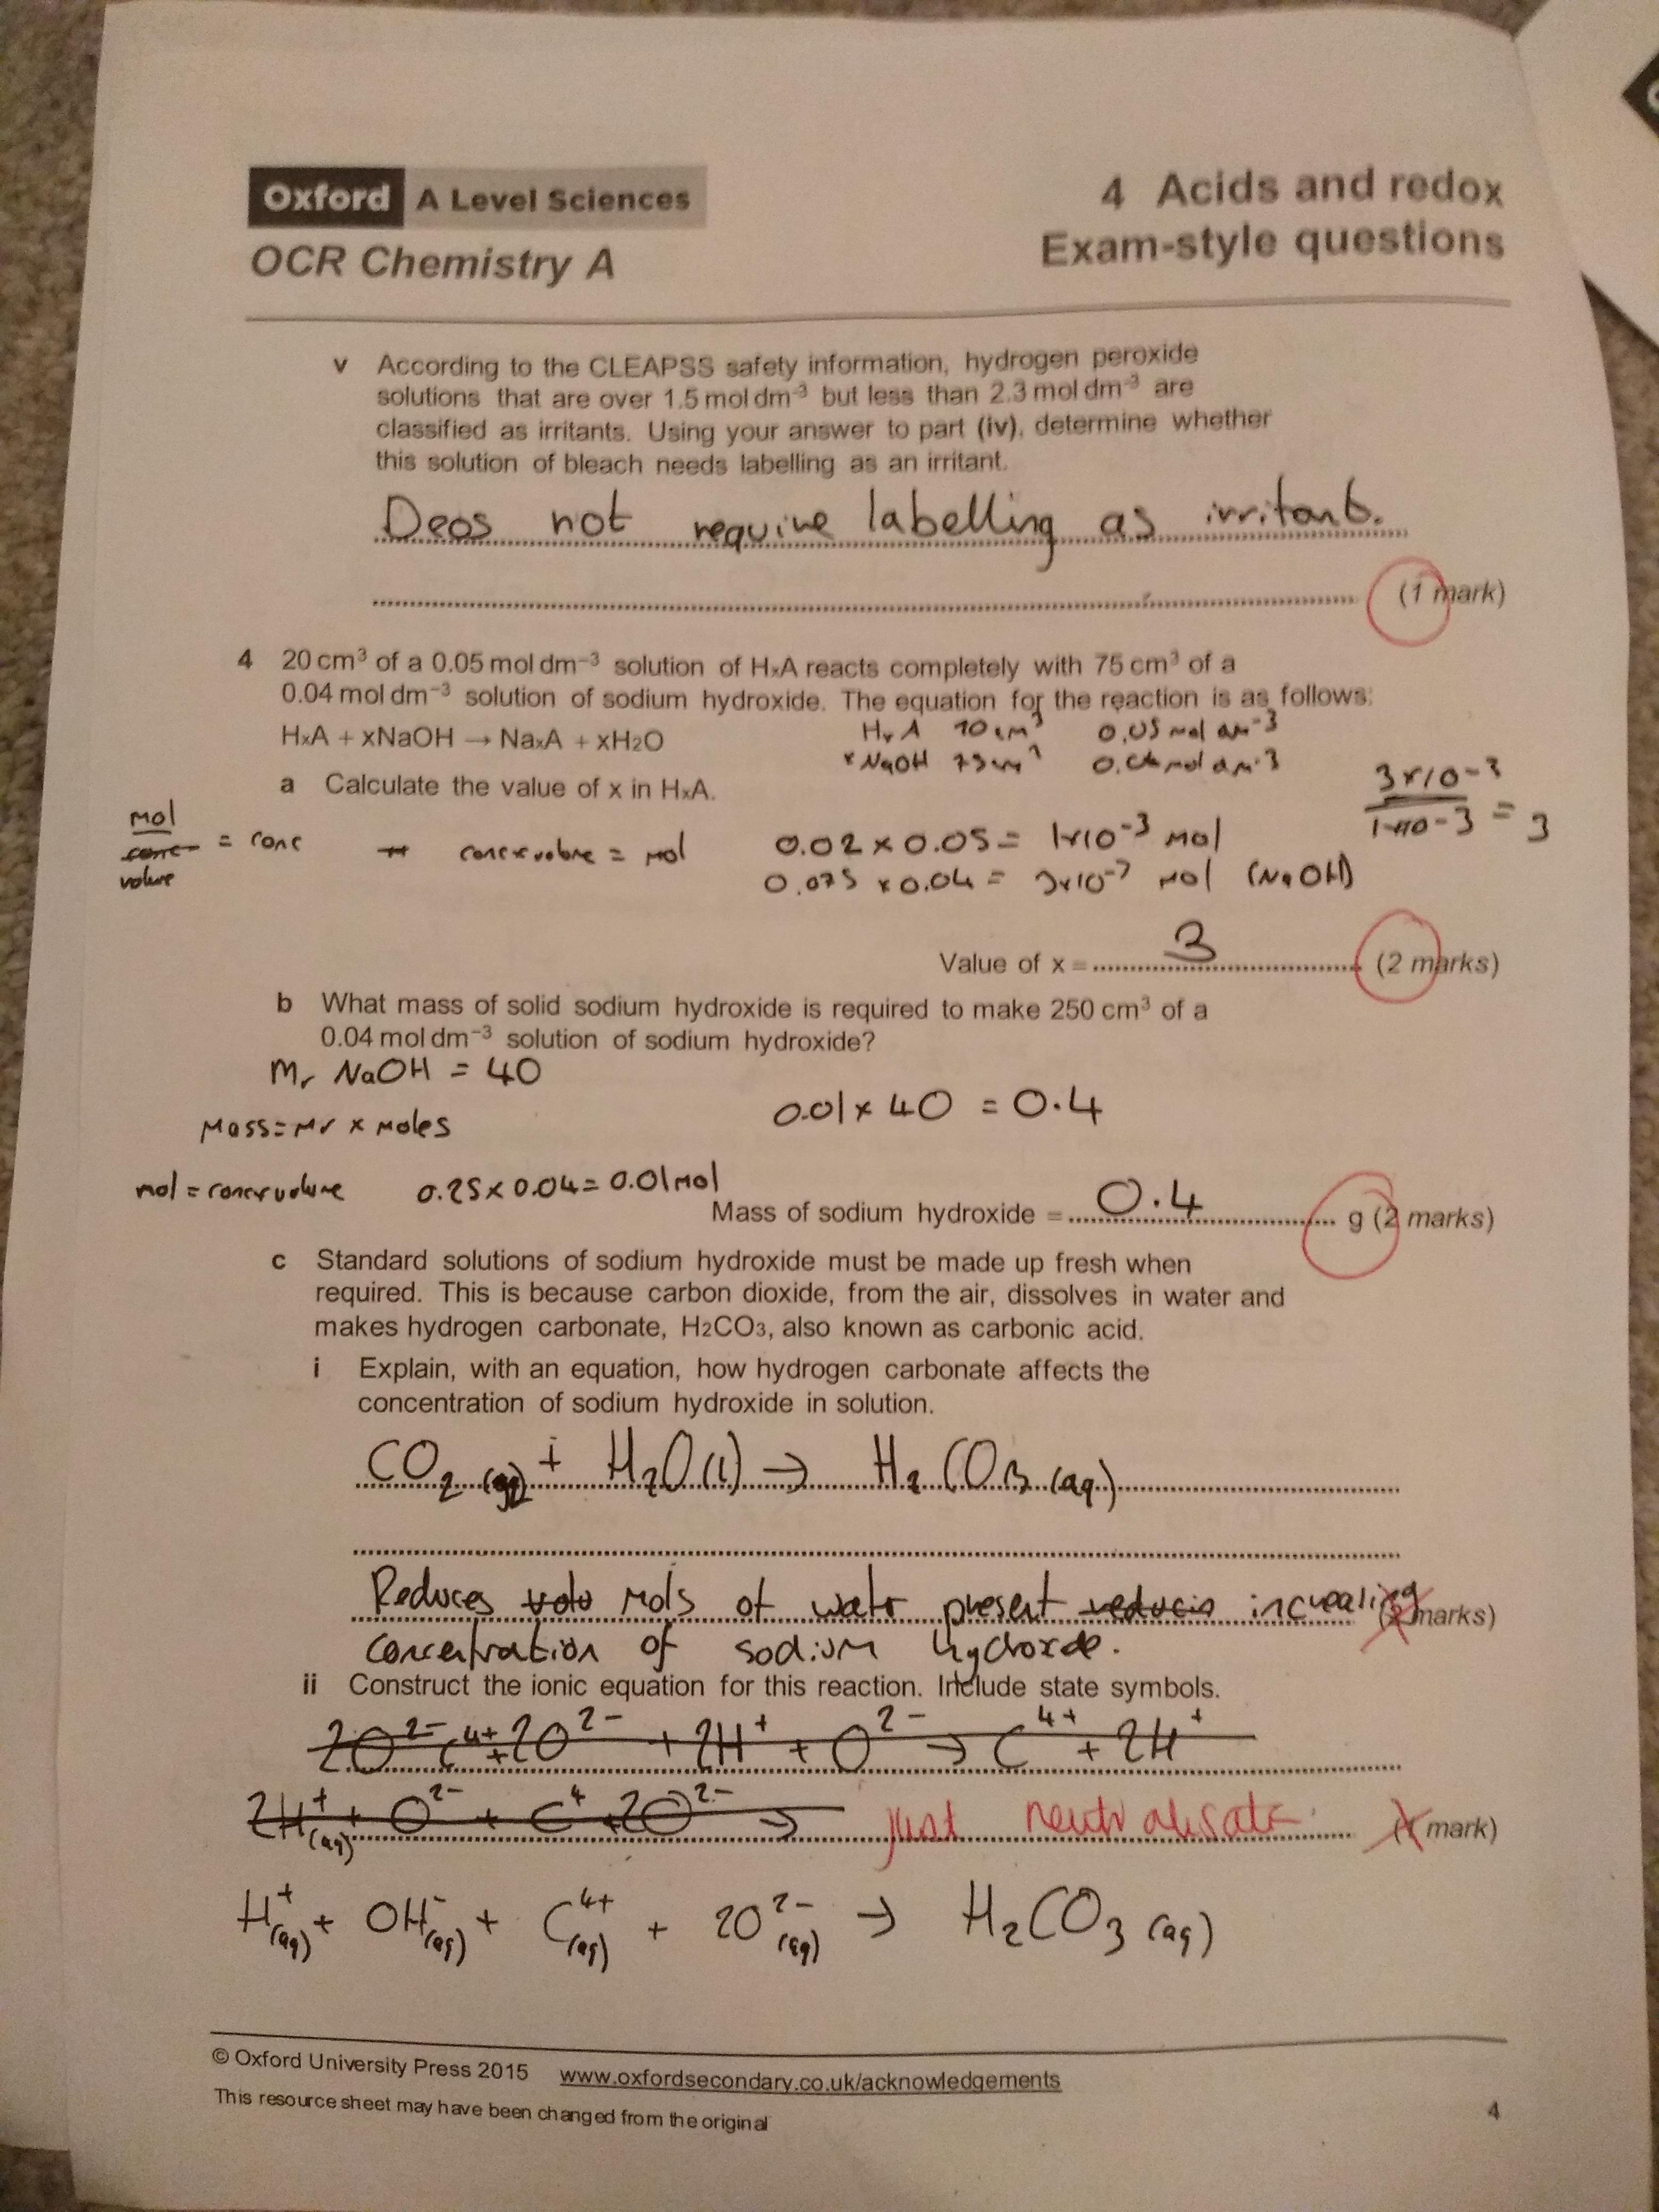 Oxford A Level Sciences
OCR Chemistry A
4 Acids and redox
Exam-style questions
v According to the CLEAPSS safety information, hydrogen peroxide
solutions that are over 1.5 mol dm⁻³ but less than 2.3 mol dm⁻³ are
classified as irritants. Using your answer to part (iv), determine whether
this solution of bleach needs labelling as an irritant.
Deos not require labelling as irritant.
(1 mark)
4 20 cm³ of a 0.05 mol dm⁻³ solution of HₓA reacts completely with 75 cm³ of a
0.04 mol dm⁻³ solution of sodium hydroxide. The equation for the reaction is as follows:
HₓA + xNaOH → NaₓA + xH₂O
HₓA 20 cm³ 0.05 mol dm⁻³
x NaOH 75 cm³ 0.04 mol dm⁻³
a Calculate the value of x in HₓA.
3×10⁻³ / 1×10⁻³ = 3
mol / volume = conc → conc × volume = mol
0.02 × 0.05 = 1×10⁻³ mol
0.075 × 0.04 = 3×10⁻³ mol (NaOH)
Value of x = 3 (2 marks)
b What mass of solid sodium hydroxide is required to make 250 cm³ of a
0.04 mol dm⁻³ solution of sodium hydroxide?
Mr NaOH = 40
0.01 × 40 = 0.4
Mass = Mr × moles
mol = conc × volume 0.25 × 0.04 = 0.01 mol
Mass of sodium hydroxide = 0.4 g (2 marks)
c Standard solutions of sodium hydroxide must be made up fresh when
required. This is because carbon dioxide, from the air, dissolves in water and
makes hydrogen carbonate, H₂CO₃, also known as carbonic acid.
i Explain, with an equation, how hydrogen carbonate affects the
concentration of sodium hydroxide in solution.
CO₂ (g) + H₂O(l) → H₂CO₃ (aq)
Reduces mols of water present increasing (2 marks)
concentration of sodium hydroxde.
ii Construct the ionic equation for this reaction. Include state symbols.
2O²⁻ C⁴⁺ + 2O²⁻ + 2H⁺ + O²⁻ → C⁴⁺ + 2H⁺
2H⁺(aq) + O²⁻ + C⁴ + 2O²⁻ → just neutralisatn (1 mark)
H⁺(aq) + OH⁻(aq) + C⁴⁺(aq) + 2O²⁻(aq) → H₂CO₃ (aq)
© Oxford University Press 2015 www.oxfordsecondary.co.uk/acknowledgements
This resource sheet may have been changed from the original
4